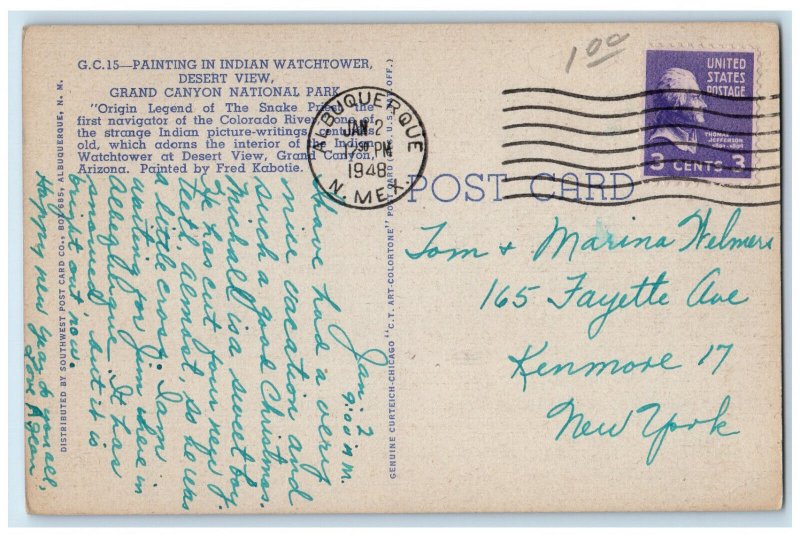 1 00
G.C.15—PAINTING IN INDIAN WATCHTOWER,
DESERT VIEW,
GRAND CANYON NATIONAL PARK
"Origin Legend of The Snake Priest, the
first navigator of the Colorado River, one of
the strange Indian picture-writings, centuries
old, which adorns the interior of the Indian
Watchtower at Desert View, Grand Canyon,
Arizona. Painted by Fred Kabotie.
DISTRIBUTED BY SOUTHWEST POST CARD CO., BOX 685, ALBUQUERQUE, N. M.
GENUINE CURTEICH-CHICAGO "C.T. ART-COLORTONE" POST CARD (REG. U.S. PAT. OFF.)
ALBUQUERQUE
JAN 2
12 30 PM
1948
N. MEX.
UNITED
STATES
POSTAGE
THOMAS
JEFFERSON
3 CENTS 3
POST CARD
Tom + Marina Welmers
165 Fayette Ave
Kenmore 17
New York
Jan. 2
9:00 A M.
Have had a very
nice vacation and
such a good Christmas.
Michall is a sweet boy.
He has cut four new
teeth almost, so he is
a little cross. I am
waiting for Jim here in
Albuquerque. It has
snowed, but it is
bright out now.
Happy new year to you all,
Love